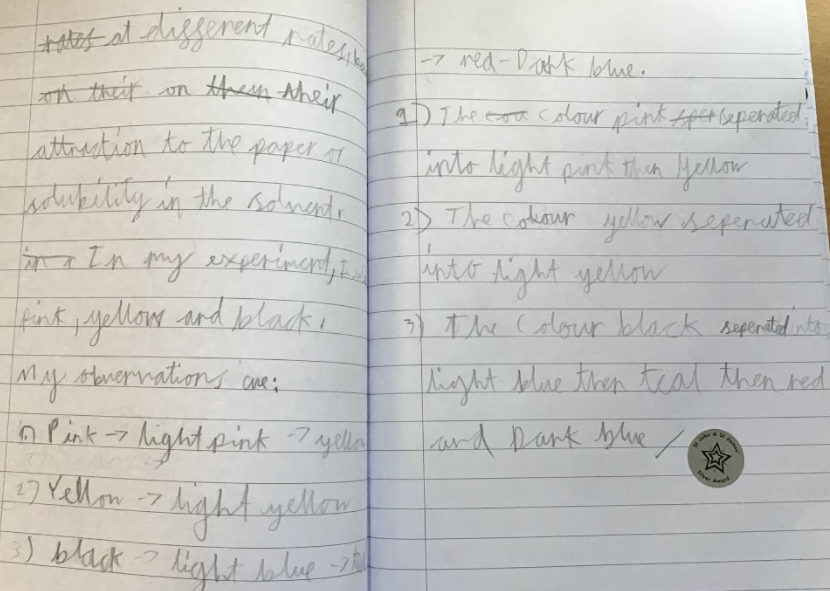 rates at different rates,
on their on them their
attraction to the paper or
solubility in the solvent.
in I In my experiment, I
pink, yellow and black.
My observations are:
1) Pink → light pink → yellow
2) Yellow → light yellow
3) black → light blue →
→ red-Dark blue.
1) The cou Colour pink seperated
into light pink then Yellow
2) The colour yellow seperated
into light yellow
3) The Colour black seperated into
light blue then teal then red
and Dark blue
St John & St James
Silver Award